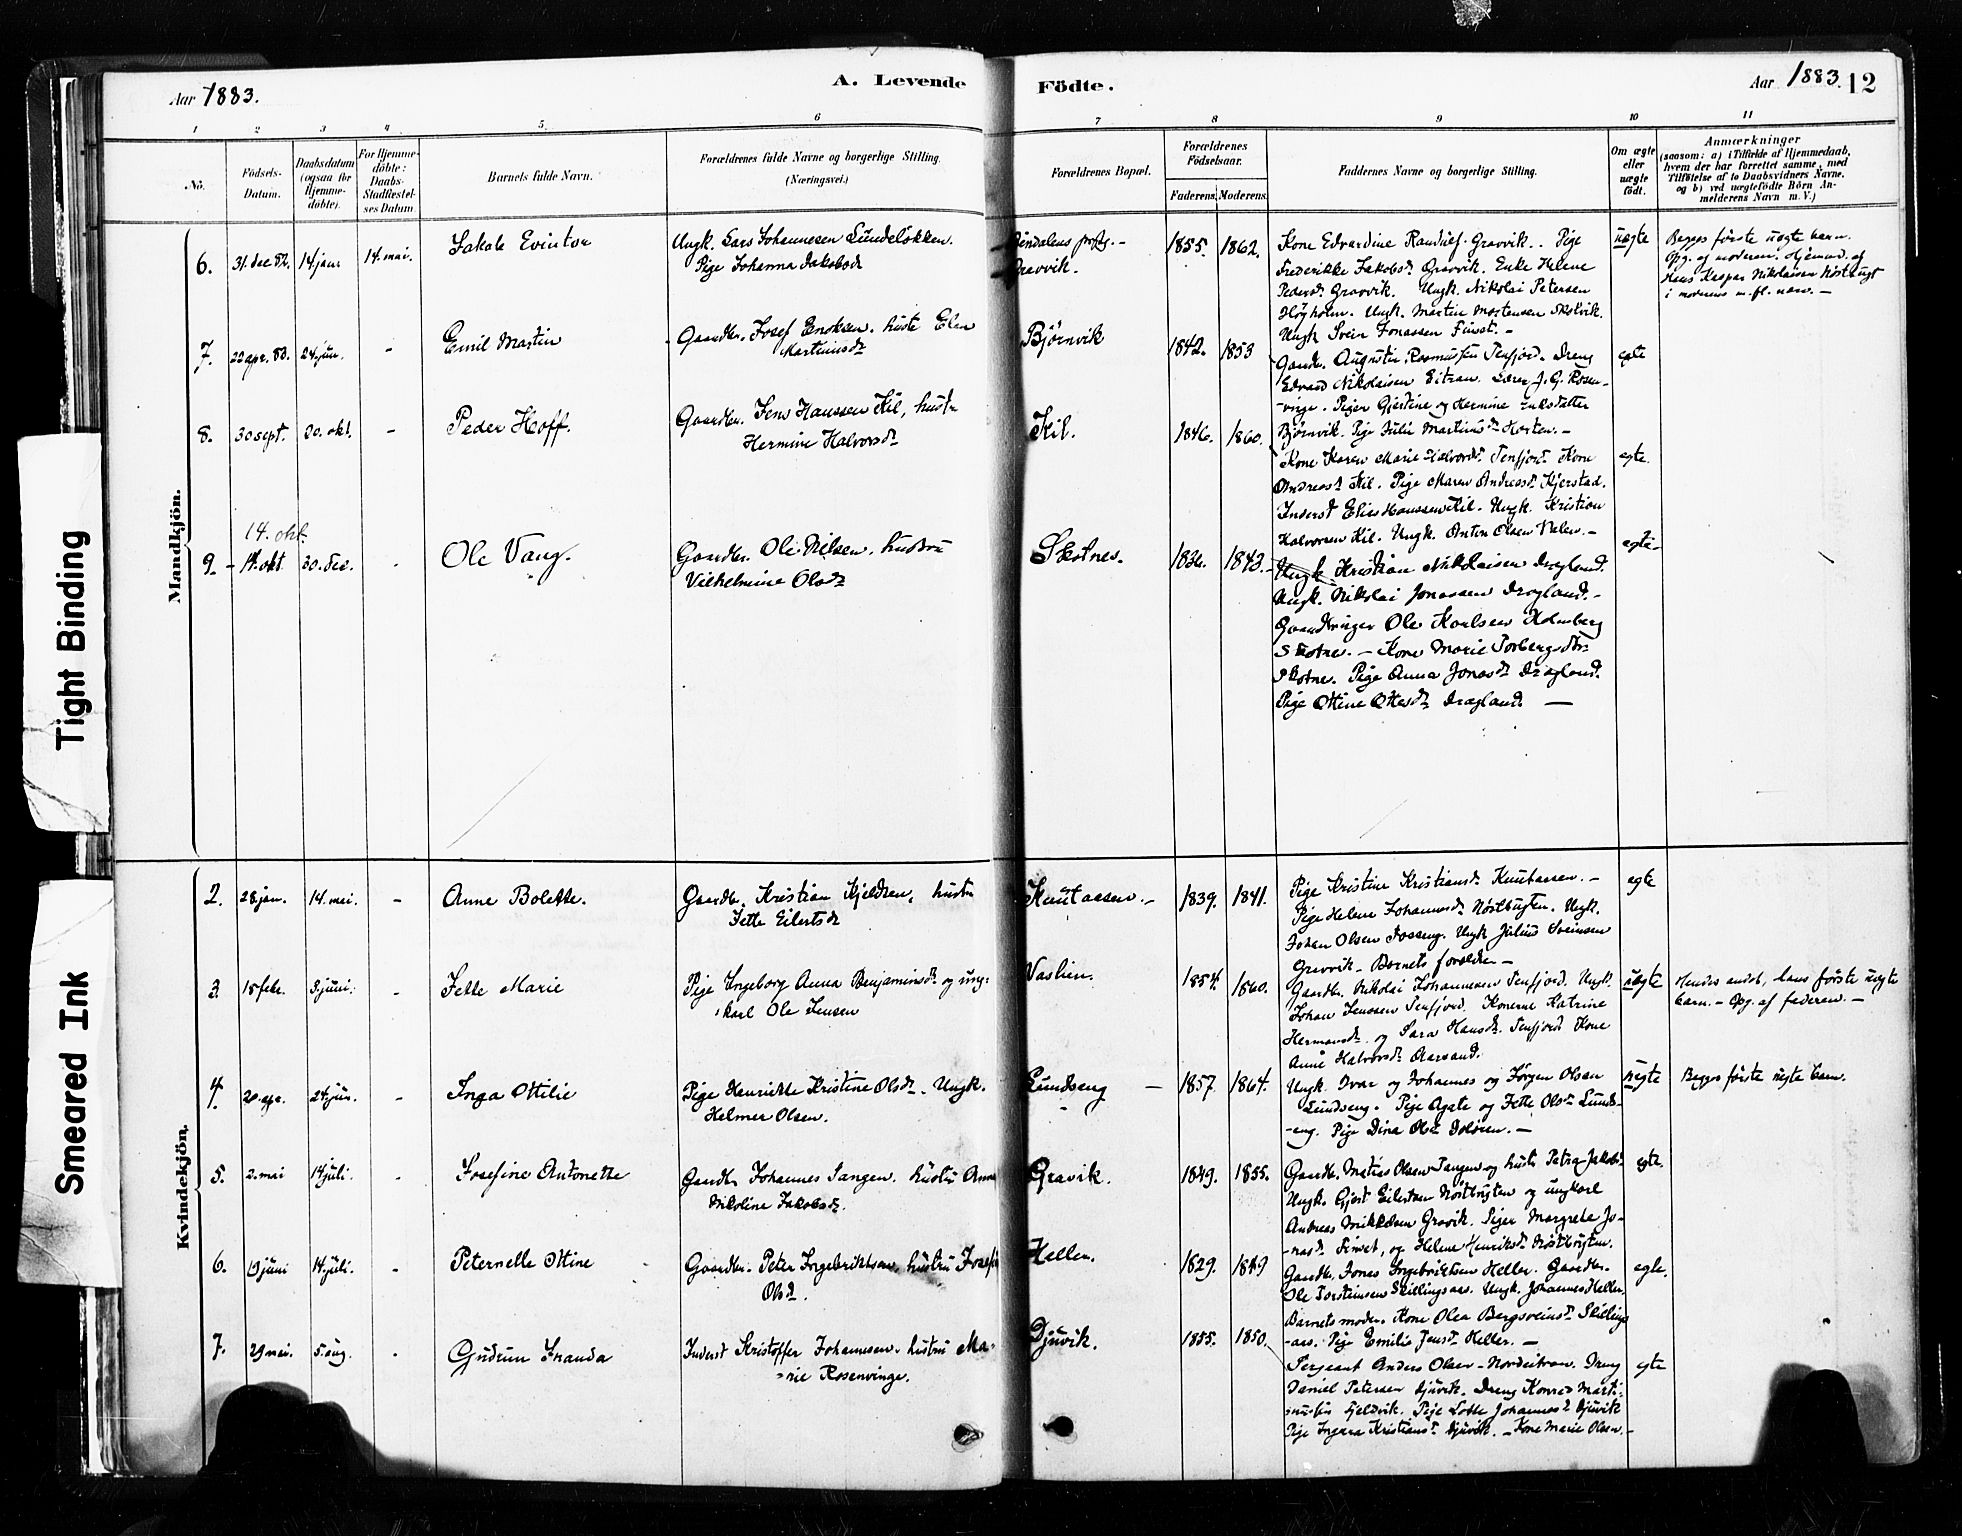 Aar 1883.
A. Levende
Födte.
Aar 1883. 12
1 2 3 4 5. 6 7 8 9 10 11
No.
Födsels-
Datum.
Daabsdatum
(ogsaa for
Hjemme-
döbte).
For Hjemme-
döbte:
Daabs-
Stadfæstel-
ses Datum
Barnets fulde Navn.
Forældrenes fulde Navne og borgerlige Stilling.
(Næringsvei.)
Forældrenes Bopæl.
Forældrenes
Födselsaar.
Faderens. Moderens.
Faddernes Navne og borgerlige Stilling.
Om ægte
eller
uægte
födt.
Anmærkninger
(saasom: a) i Tilfælde af Hjemmedaab,
hvem der har forrettet samme, med
Tilföielse af to Daabsvidners Navne,
og b) ved uægtefödte Börn An-
melderens Navn m. V.)
Mandkjön.
6. 31. dec 82. 14 14. mai. Jakob
Ungk. Lars Johannesen Lundeløkken.
Pige Johanna Jakobsd
Bindalens
Gravvik.
1855. 1862.
Kone Edvardine Gravvik. Pige
Frederikke Jakobsd. Gravvik. Enke Helene
Pedersd. Gravvik. Ungk. Nikolai Petersen
Høyholm. Ungk. Martin Mortensen
Ungk Svein Jonassen
uegte
Begges første uegte barn.
Opg. af moderen. Hjemmed. af
Hans Kaspar Nikolaisen
7. 22 apr. 83. 24. jun. - Emil Martin
Gaardbr. Josef Enoksen. hustr Elen
Martinusd
Bjørnvik
1842. 1853
Gaardbr. Augustin Rasmussen Tenfjord. Dreng
Edvard Nikolaisen Eitran. Lærer J. G. Rosen-
-vinge. Piger Gjertine og Hermine
Bjørnvik. Pige Julie Martinusd Horten. -
egte
8. 30 sept. 20. okt. - Peder Hoff.
Gaardbr. Jens Hanssen Kil, hustr
Hermine Halvorsd
Kil.
1846. 1860.
Kone Karen Marie Halvorsd Tenfjord Kone
Andreasd Kil. Pige Maren Andreasd. Kjerstad.
Inderst Elias Hanssen Kil. Ungk. Kristian
Halvorsen Kil. Ungk. Anton Olsen -
egte.
14. okt.
9. - 14. okt. 30. dec. - Ole Vang.
Gaardbr. Ole Nilsen. hustru
Vilhelmine Olsd
Skotnes.
1836. 1843.
Ungk Kristian Nikolaisen Dragland.
Ungk. Nikolai Jonassen Dragland. -
Gaardbruger Ole Karlsen Holmberg
Skotne. - Kone Marie Torbergsdtr.
Skotne. Pige Anna Jonasd Dragland.
Pige Ottine Ottesd Dragland. -
egte -
Kvindekjön.
2. 28. jan. 14. mai. - Anne Bolette.
Gaardbr. Kristian Kjeldsen, hustr
Jette Eilertsd
Knutaasen. -
1839. 1841.
Pige Kristine Kristiansd. Knutaasen. -
Pige Helene Johannesd. Nøstbugten. Ungk.
Johan Olsen Ungk Julius Sveinsen
Gravvik - Barnets forældre -
egte
3. 15 febr. 3. juni. - Jette Marie
Pige Ingeborg Anna Benjaminsd og ung-
karl Ole Jensen
1854. 1860.
Gaardbr. Nikolai Johannesen Tenfjord. Ungk.
Johan Jenssen Tenfjord. Konerne Katrine
Hermansd. og Sara Hansd. Tenfjord Kone
Anne Halvorsd. Aarsand.
uegte
Hendes andet, hans første uegte
barn. - Opg. af faderen. -
4. 20 apr. 24. jun. - Inga Ottilie
Pige Henrikke Kristine Olsd. Ungk.
Helmer Olsen.
Lundseng -
1857. 1864.
Ungk. Ivar og Johannes og Jørgen Olsen
Lundseng. Pige Agate og Jette Olsd Lunds-
-eng. Pige Dina Olsd -
uegte
Begges første uegte barn.
5. 2. mai 14. juli. - Josefine Antonette
Gaardbr Johannes Tangen. hustru Anna
Nikoline Jakobsd.
Gravik.
1849. 1855.
Gaardbr. Matias Olsen Tangen og hustr Petra Jakobsd
Ungk. Gjert Eilertsen Nøstbugten og ungkarl
Andreas Mikkelsen Gravik. Piger Margrete Jo-
-nasd og Helene Henriksd Nøstbugten.
egte.
6. 19 juni 14. juli. - Peternelle Ottine
Gaardbr. Peter Ingebriktsen, hustru Josefi
Olsd.
Heller.
1829. 1849
Gaardbr. Jonas Ingebriktsen Heller. Gaardbr.
Ole Torsteinsen Skillingsaas. Ungk. Johannes Heller.
Barnets moder. Kone Olea Skillings
-aas. Pige Emilie Jensd Heller. -
egte.
7. 29 mai. 5. aug. - Gudrun
Inderst Kristoffer Johannesen. hustru Ma-
-rie Rosenvinge.
Djuvik.
1855. 1850.
Sergeant Anders Olsen - Dreng
Daniel Petersen Djuvik. Dreng Konrad Marti-
Pige Lotte Johannesd Djuvik
Pige Kristiansd. Djuvik. - Kone Marie Olsen. -
egte
Tight Binding
Smeared Ink